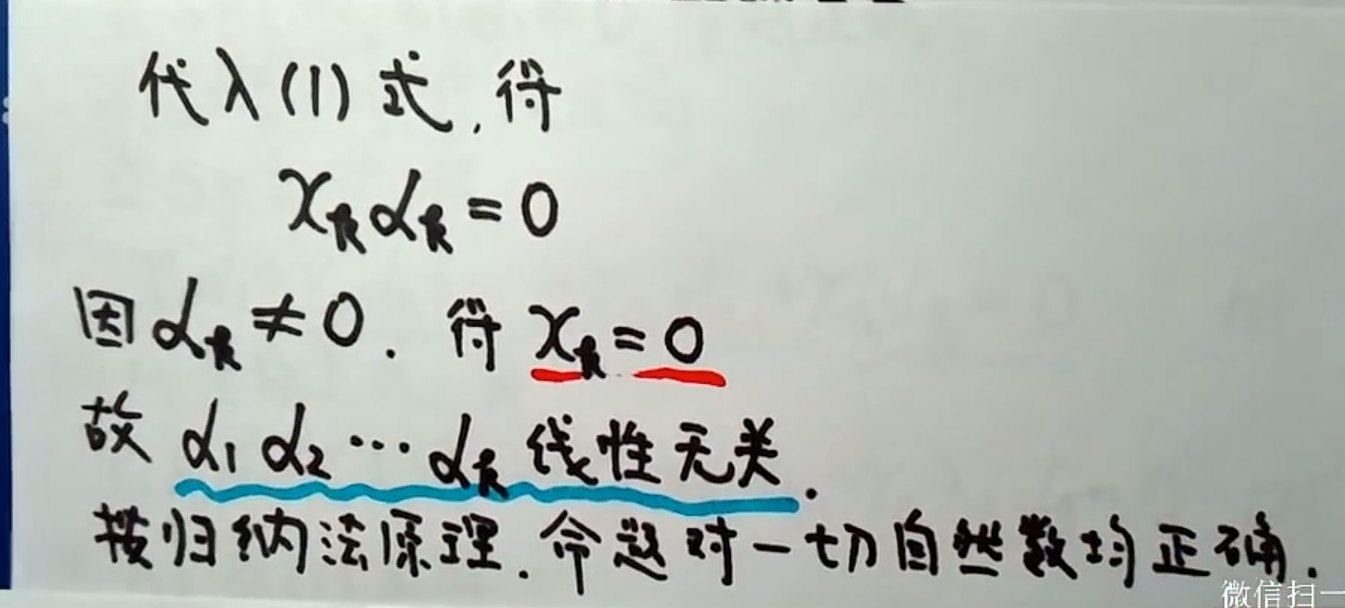 代入(1)式,得
x_kα_k=0
因α_k≠0.得x_k=0
故α₁α₂⋯α_k线性无关.
按归纳法原理.命题对一切自然数均正确.
微信扫一